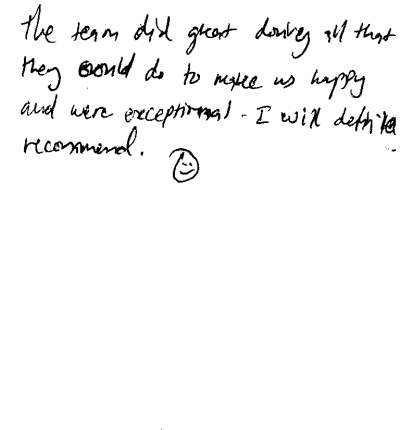 The team did great doing all that
they could do to make us happy
and were exceptional - I will
recommend.